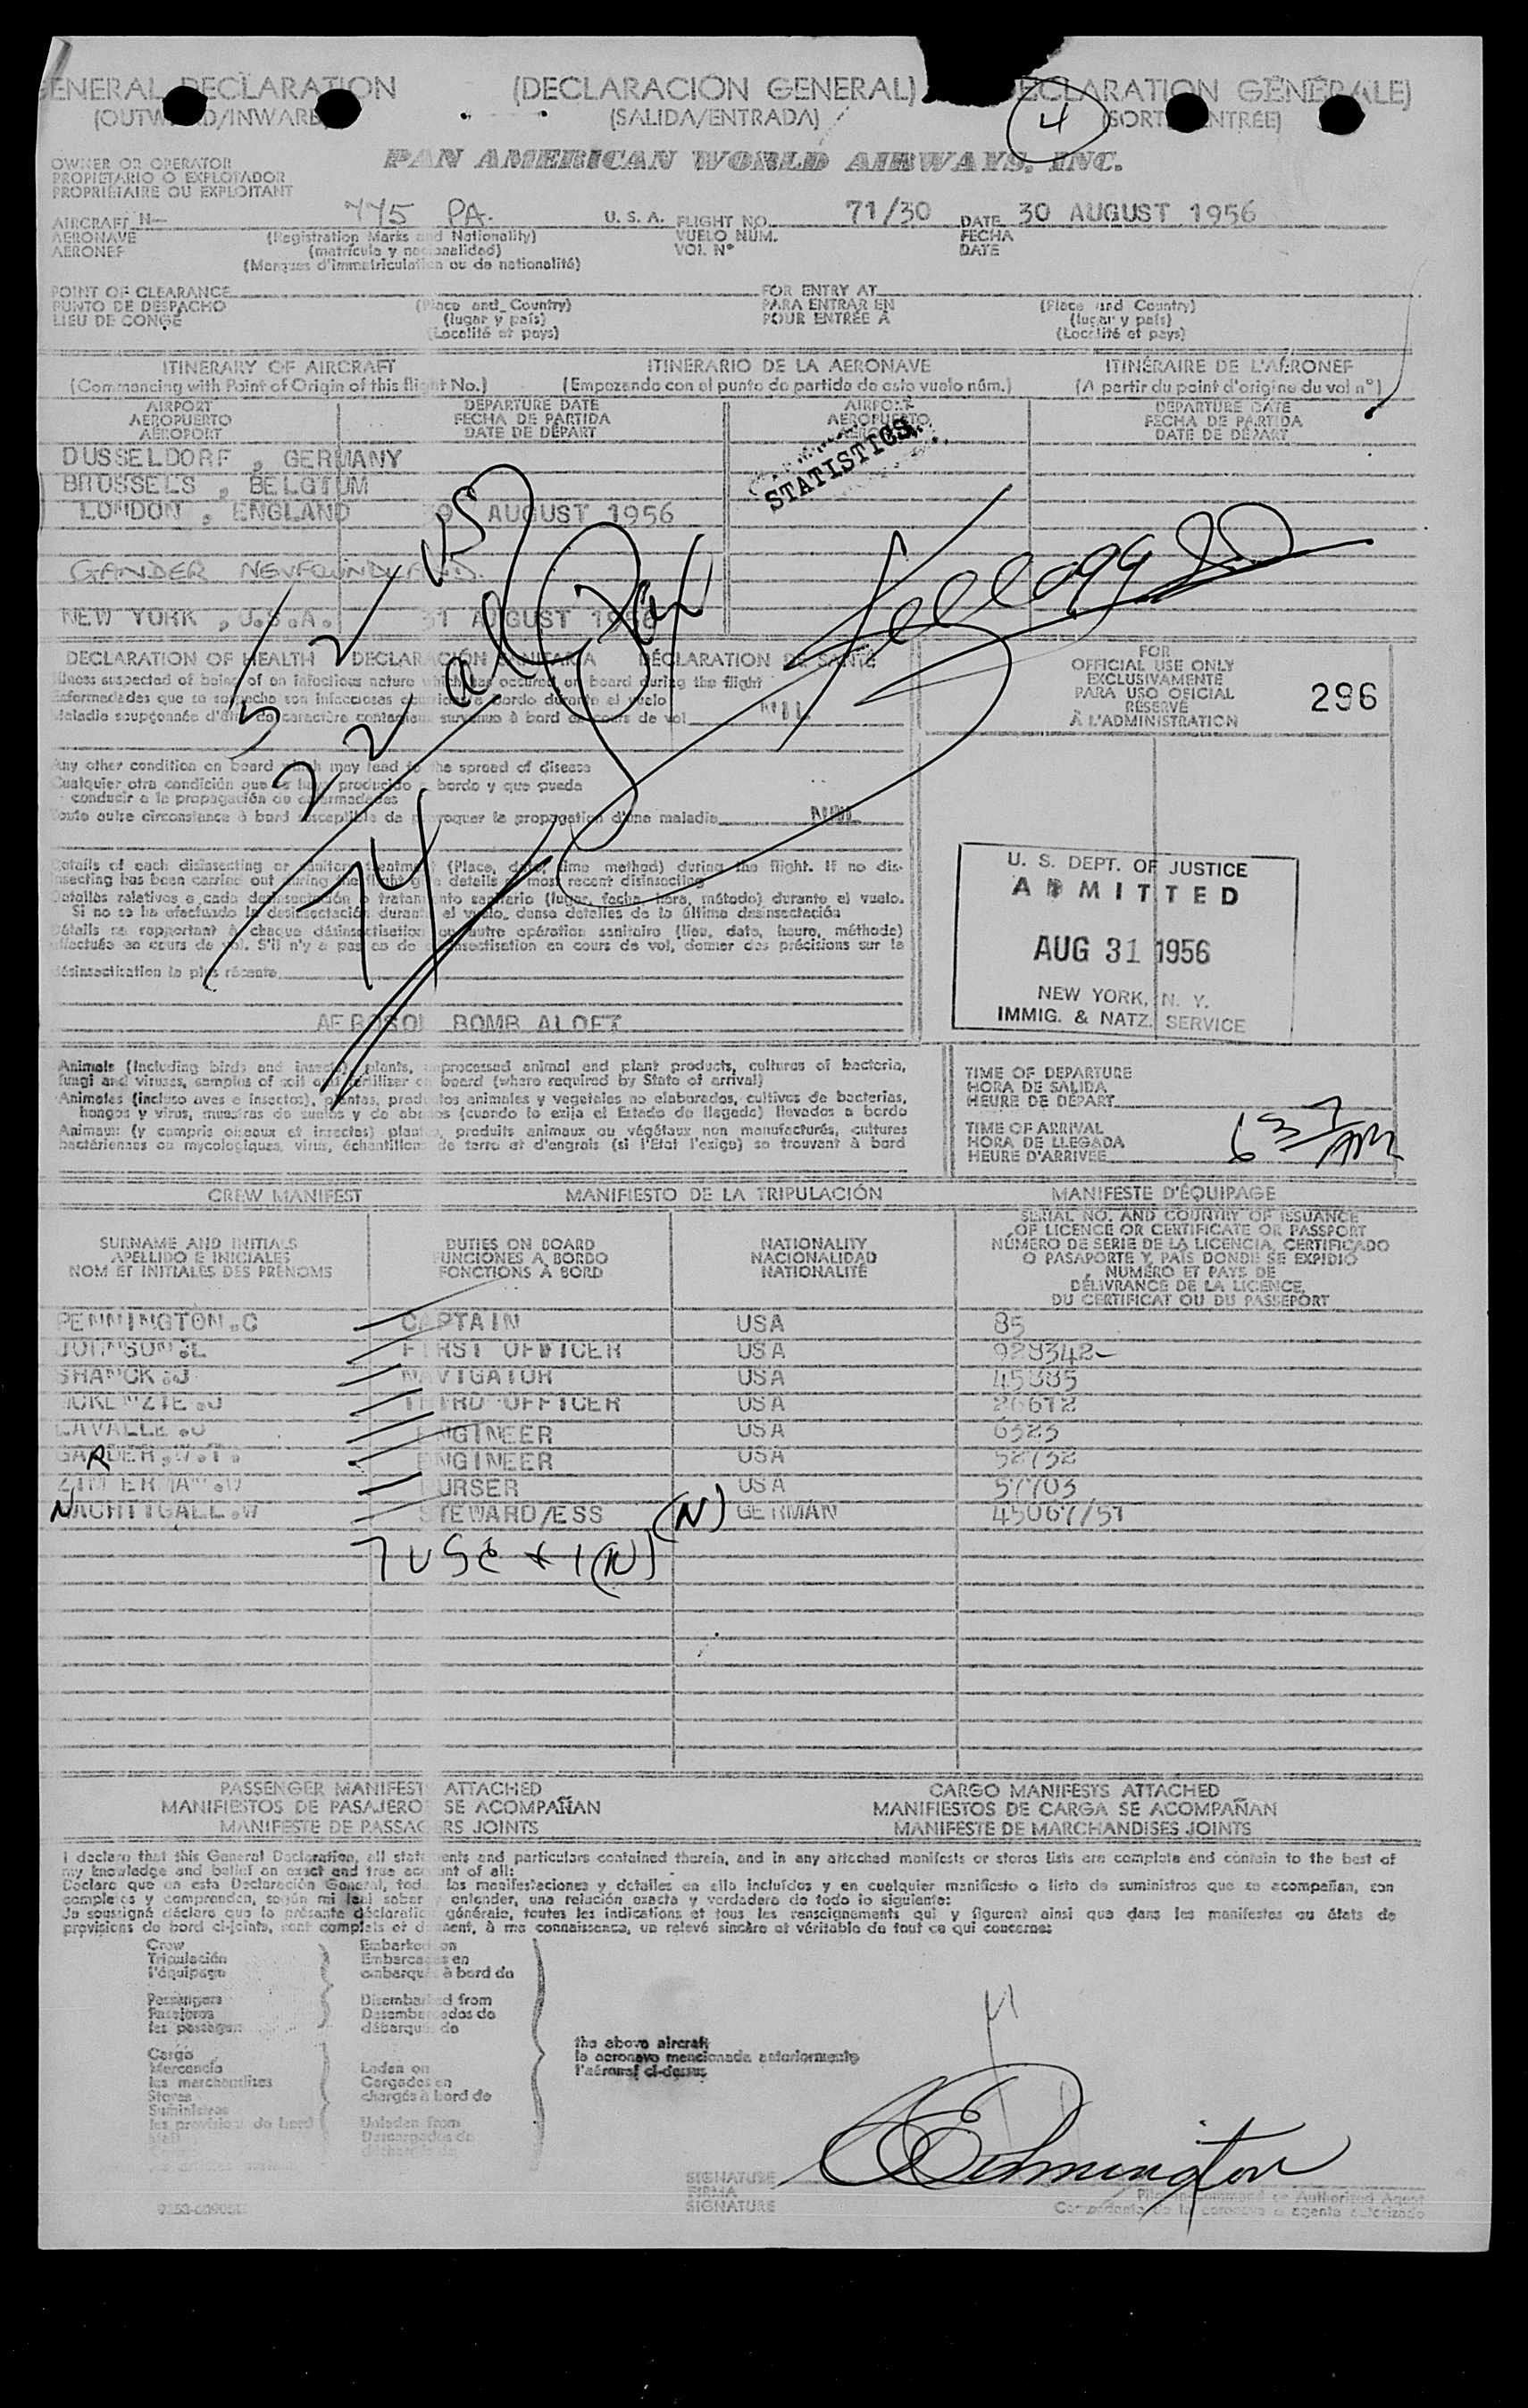 GENERAL DECLARATION (DECLARACIÓN GENERAL) DECLARATION GÉNÉRALE)
(OUTWARD/INWARD) (SALIDA/ENTRADA) 4 (SORTIE/ENTRÉE)
OWNER OR OPERATOR PAN AMERICAN WORLD AIRWAYS, INC.
PROPIETARIO O EXPLOTADOR
PROPRIÉTAIRE OU EXPLOITANT
AIRCRAFT N— 775 PA. U. S. A. FLIGHT NO. 71/30 DATE 30 AUGUST 1956
AERONAVE (Registration Marks and Nationality) VUELO NÚM. FECHA
AÉRONEF (matrícula y nacionalidad) VOL N° DATE
(Marques d'immatriculation ou de nationalité)
POINT OF CLEARANCE FOR ENTRY AT
PUNTO DE DESPACHO (Place and Country) PARA ENTRAR EN (Place and Country)
LIEU DE CONGÉ (lugar y país) POUR ENTRÉE À (lugar y país)
(Localité et pays) (Localité et pays)
ITINERARY OF AIRCRAFT ITINERARIO DE LA AERONAVE ITINÉRAIRE DE L'AÉRONEF
(Commencing with Point of Origin of this flight No.) (Empezando con el punto de partida de este vuelo núm.) (A partir du point d'origine du vol n°)
AIRPORT DEPARTURE DATE AIRPORT DEPARTURE DATE
AEROPUERTO FECHA DE PARTIDA AEROPUERTO FECHA DE PARTIDA
AÉROPORT DATE DE DÉPART DATE DE DÉPART
STATISTICS
DUSSELDORF , GERMANY
BRUSSELS , BELGIUM
LONDON , ENGLAND 30 AUGUST 1956
GANDER NEWFOUNDLAND.
NEW YORK ,U.S.A. 31 AUGUST 1956
52 US
22 al
74 Pax
Kellogg
DECLARATION OF HEALTH DECLARACIÓN SANITARIA DÉCLARATION DE SANTÉ
Illness suspected of being of an infectious nature which has occured on board during the flight
Enfermedades que se sospecha son infecciosas ocurridas a bordo durante el vuelo
Maladie soupçonnée d'être de caractère contagieux survenue à bord en cours de vol NIL
Any other condition on board which may lead to the spread of disease
Cualquier otra condición que se haya producido a bordo y que pueda
conducir a la propagación de enfermedades
Toute autre circonstance à bord susceptible de provoquer la propagation d'une maladie NIL
Details of each disinsecting or sanitary treatment (Place, date, time method) during the flight. If no dis-
insecting has been carried out during the flight give details of most recent disinsecting
Detalles relativos a cada desinsectación o tratamiento sanitario (lugar, fecha, hora, método) durante el vuelo.
Si no se ha efectuado la desinsectación durante el vuelo, dense detalles de la última desinsectación
Détails se rapportant à chaque désinsectisation ou autre opération sanitaire (lieu, date, heure, méthode)
effectuée en cours de vol. S'il n'y a pas eu de désinsectisation en cours de vol, donner des précisions sur la
désinsectisation la plus récente
AEROSOL BOMB ALOFT
FOR
OFFICIAL USE ONLY
EXCLUSIVAMENTE
PARA USO OFICIAL
RÉSERVÉ
À L'ADMINISTRATION
296
U. S. DEPT. OF JUSTICE
ADMITTED
AUG 31 1956
NEW YORK, N. Y.
IMMIG. & NATZ. SERVICE
Animals (including birds and insects), plants, unprocessed animal and plant products, cultures of bacteria,
fungi and viruses, samples of soil and fertiliser on board (where required by State of arrival)
Animales (incluso aves e insectos), plantas, productos animales y vegetales no elaborados, cultivos de bacterias,
hongos y virus, muestras de suelos y de abonos (cuando lo exija el Estado de llegada) llevados a bordo
Animaux (y compris oiseaux et insectes) plantes, produits animaux ou végétaux non manufacturés, cultures
bactériennes ou mycologiques, virus, échantillons de terre et d'engrais (si l'Etat l'exige) se trouvant à bord
TIME OF DEPARTURE
HORA DE SALIDA
HEURE DE DÉPART
TIME OF ARRIVAL
HORA DE LLEGADA
HEURE D'ARRIVÉE 637 AM
CREW MANIFEST MANIFIESTO DE LA TRIPULACIÓN MANIFESTE D'ÉQUIPAGE
SURNAME AND INITIALS DUTIES ON BOARD NATIONALITY SERIAL NO. AND COUNTRY OF ISSUANCE
APELLIDO E INICIALES FUNCIONES A BORDO NACIONALIDAD OF LICENCE OR CERTIFICATE OR PASSPORT
NOM ET INITIALES DES PRÉNOMS FONCTIONS À BORD NATIONALITÉ NÚMERO DE SERIE DE LA LICENCIA, CERTIFICADO
O PASAPORTE Y PAÍS DONDE SE EXPIDIÓ
NUMÉRO ET PAYS DE
DÉLIVRANCE DE LA LICENCE,
DU CERTIFICAT OU DU PASSEPORT
PENNINGTON.C CAPTAIN USA 85
JOHNSON.L FIRST OFFICER USA 928342
SHANCK.J NAVIGATOR USA 45885
MCKENZIE.J THIRD OFFICER USA 26672
LAVALLE.J ENGINEER USA 6323
GARDER.W.T. ENGINEER USA 52732
ZIMMERMAN.W PURSER USA 57703
NACHTIGALL.W STEWARD/ESS (N) GERMAN 45067/57
7 USC + 1 (N)
PASSENGER MANIFEST ATTACHED CARGO MANIFESTS ATTACHED
MANIFIESTOS DE PASAJEROS SE ACOMPAÑAN MANIFIESTOS DE CARGA SE ACOMPAÑAN
MANIFESTE DE PASSAGERS JOINTS MANIFESTE DE MARCHANDISES JOINTS
I declare that this General Declaration, all statements and particulars contained therein, and in any attached manifests or stores lists are complete and contain to the best of
my knowledge and belief an exact and true account of all:
Declaro que en esta Declaración General, todas las manifestaciones y detalles en ella incluídos y en cualquier manifiesto o lista de suministros que se acompañan, son
completos y comprenden, según mi leal saber y entender, una relación exacta y verdadera de todo lo siguiente:
Je soussigné déclare que la présente déclaration générale, toutes les indications et tous les renseignements qui y figurent ainsi que dans les manifestes ou états de
provisions de bord ci-joints, sont complets et donnent, à ma connaissance, un relevé sincère et véritable de tout ce qui concerne:
Crew Embarked on
Tripulación Embarcados en
l'équipage embarqué à bord de
Passengers Disembarked from
Pasajeros Desembarcados de
les passagers débarqués de
the above aircraft
la aeronave mencionada anteriormente
l'aéronef ci-dessus
Cargo
Mercancía Laden on
les marchandises Cargados en
Stores chargés à bord de
Suministros
les provisions de bord Unladen from
Descargados de
CPennington
SIGNATURE
FIRMA Pilot in Command or Authorized Agent
SIGNATURE Comandante de la aeronave o agente autorizado